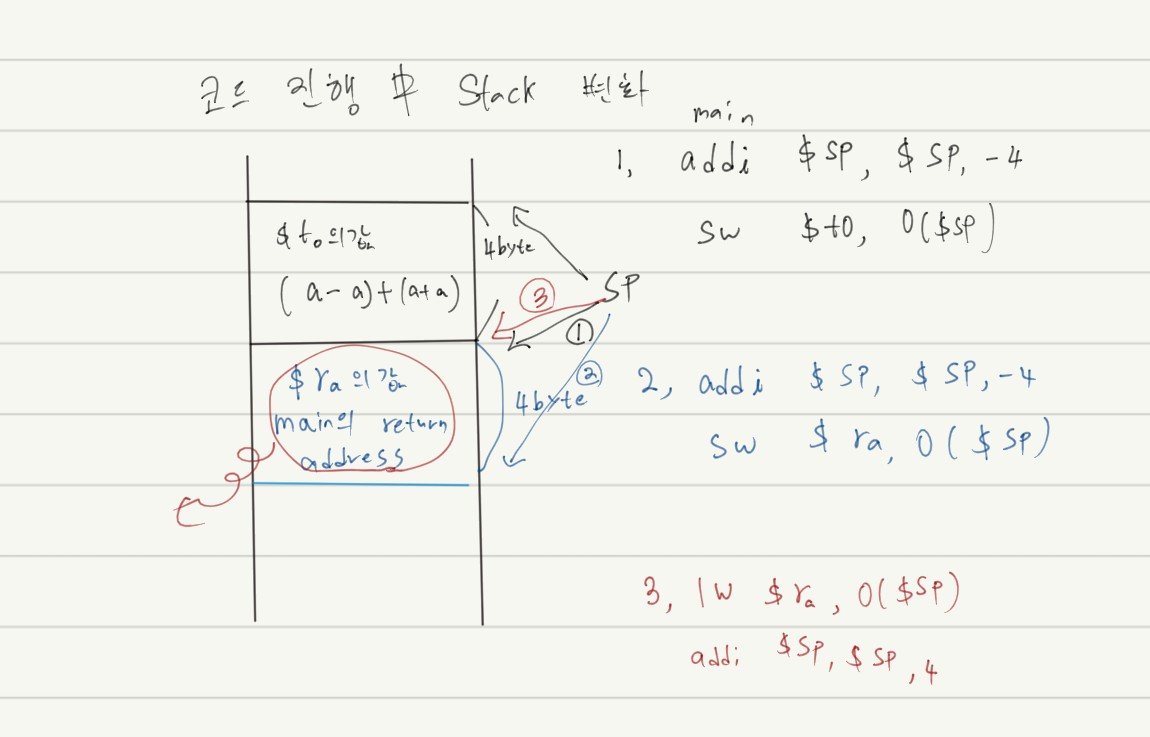 코드 진행 中 Stack 변화
main
1, addi $SP, $SP, -4
sw $t0, 0($SP)
$t₀의 값
(a-a)+(a+a)
4byte
SP
③
①
②
$ra의 값
main의 return
address
4byte
2, addi $SP, $SP, -4
sw $ra, 0($SP)
3, lw $ra, 0($SP)
addi $SP, $SP, 4